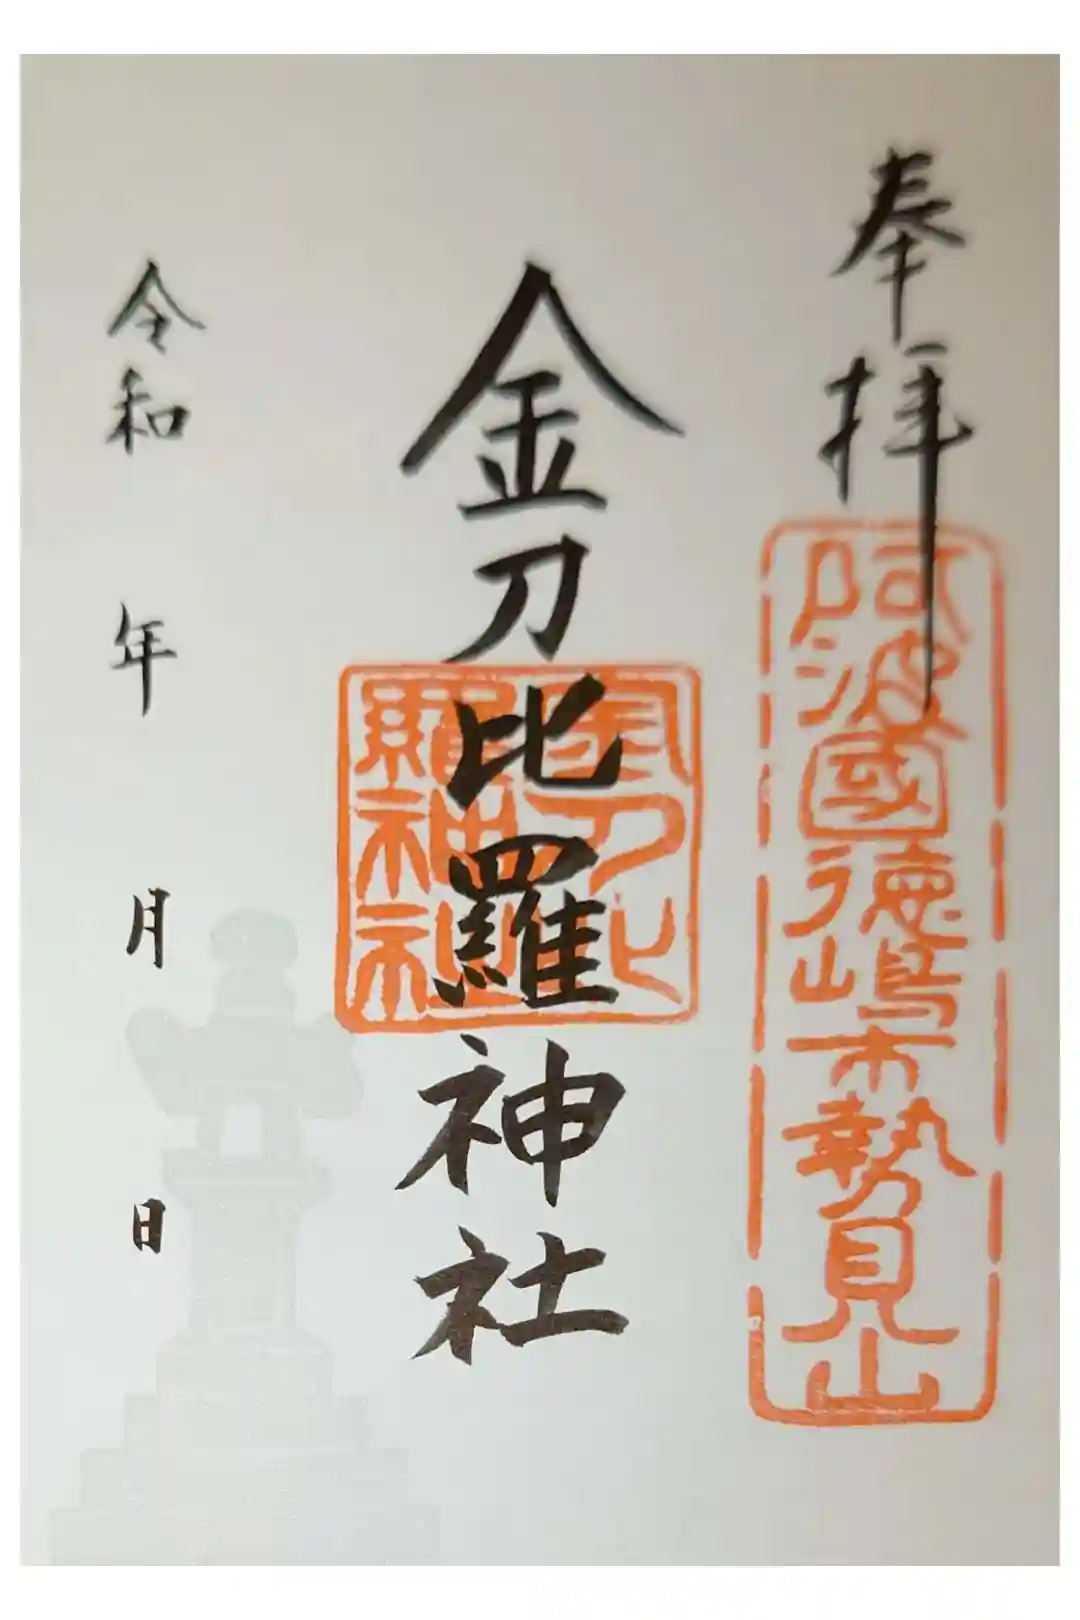 奉拝
阿波國徳島市勢見山
金刀比羅神社
金刀比羅神社
令和 年 月 日